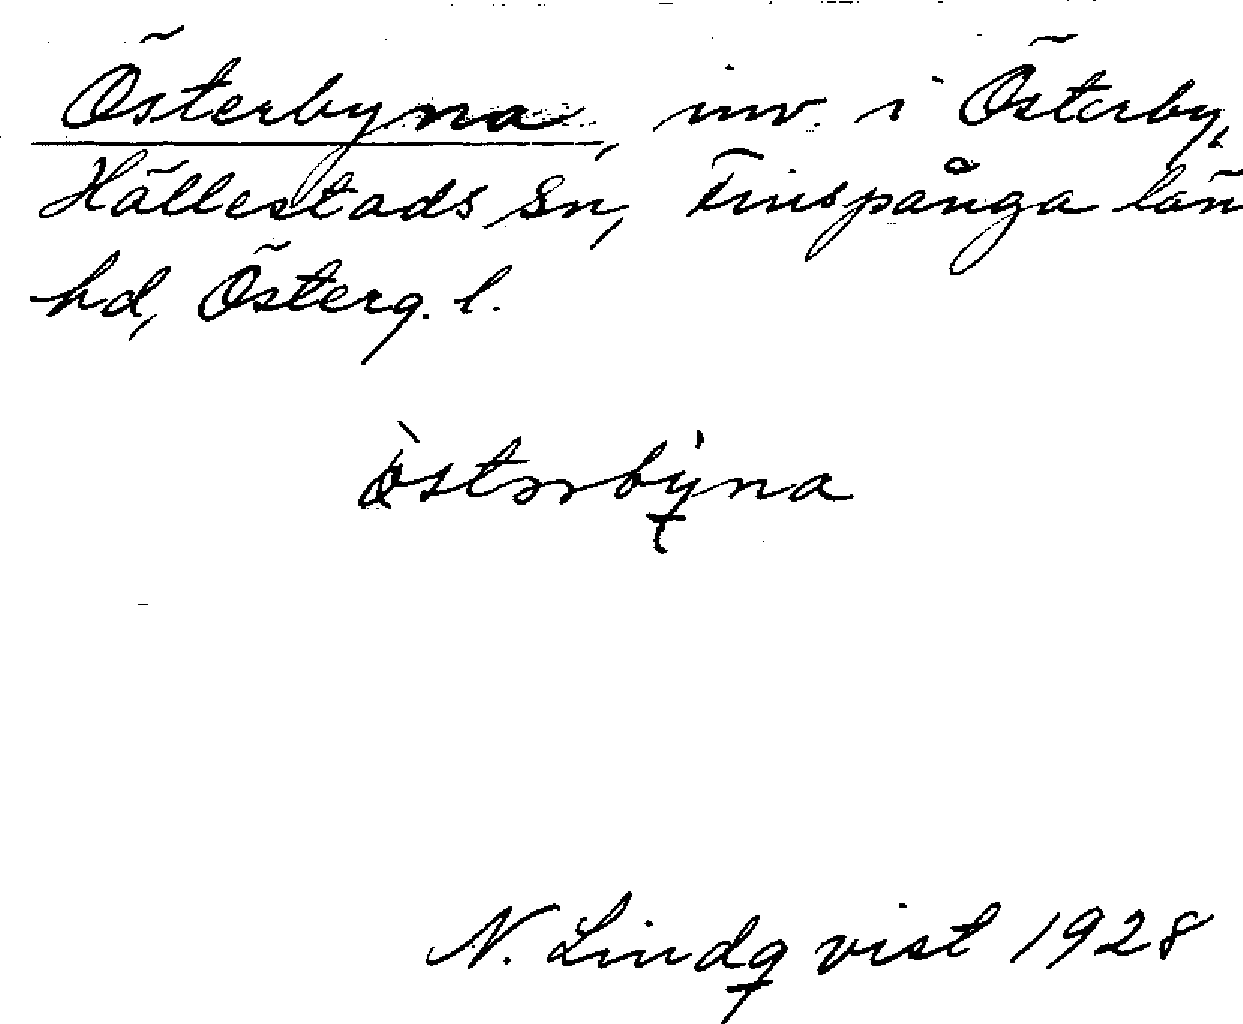 Österbyna, inv. i Österby,
Hällestads sn, Finspånga län
hd, Österg. l.
N. Lindqvist 1928